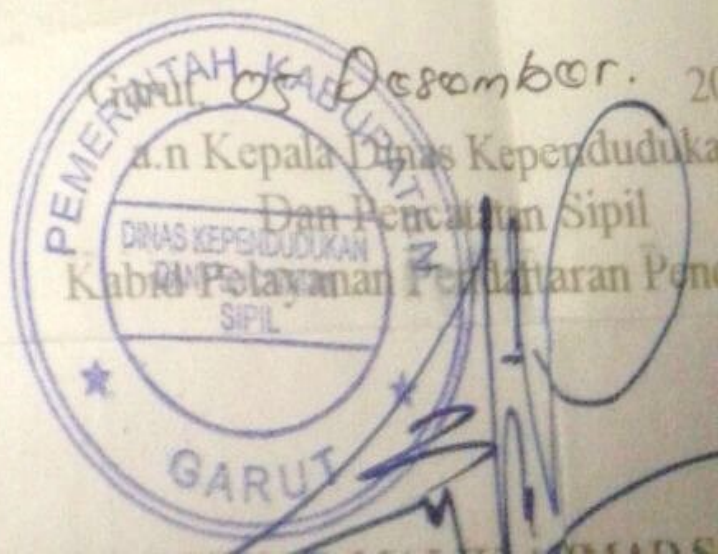 Garut, 05 Desember. 20
a.n Kepala Dinas Kependuduka
Dan Pencatatan Sipil
Kabid Pelayanan Pendaftaran Pend
PEMERINTAH KABUPATEN
DINAS KEPENDUDUKAN
SIPIL
GARUT